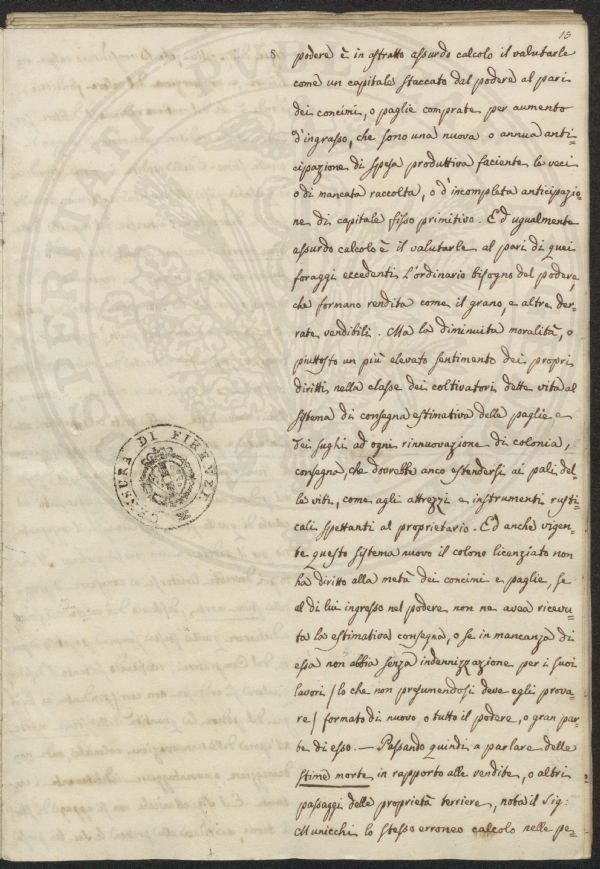 15
8
podere è in astratto assurdo calcolo il valutarle
come un capitale staccato dal podere al pari
dei concimi, o paglie comprate per aumento
d'ingrasso, che sono una nuova o annua anti=
cipazione di spesa produttiva faciente le veci
o di mancata raccolta, o d'incompleta anticipazio=
ne di capitale fisso primitivo. Ed ugualmente
assurdo calcolo è il valutarle al pari di quei
foraggi eccedenti l'ordinario bisogno del podere,
che formano rendita come il grano, e altre der=
rate vendibili. Ma la diminuita moralità, o
piuttosto un più elevato sentimento dei propri
diritti nella classe dei coltivatori dette vita al
sistema di consegna estimativa delle paglie e
dei sughi ad ogni rinnuovazione di colonia,
consegna, che dovrebbe anco estendersi ai pali del=
le viti, come agli attrezzi e instrumenti rusti=
cali spettanti al proprietario. Ed anche vigen=
te questo sistema nuovo il colono licenziato non
ha diritto alla metà dei concimi e paglie, se
al di lui ingresso nel podere non ne avea ricevu=
ta la estimativa consegna, o se in mancanza di
essa non abbia senza indennizzazione per i suoi
lavori / lo che non presumendosi deve egli prova=
re / formato di nuovo o tutto il podere, o gran par=
te di esso. — Passando quindi a parlare delle
stime morte in rapporto alle vendite, o altri
passaggi delle proprietà terriere, nota il Sig:
Municchi lo stesso erroneo calcolo nelle pe=
CENSURA DI FIRENZE